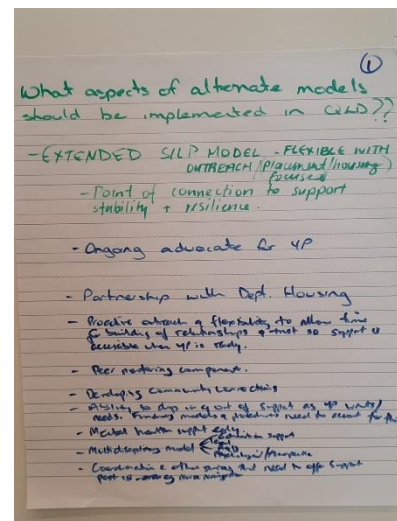 ①
What aspects of alternate models
should be implemented in QLD??
- EXTENDED SILP MODEL - FLEXIBLE WITH
OUTREACH (placement/housing)
focused
- Point of connection to support
stability + resilience.
- Ongoing advocate for YP
- Partnership with Dept. Housing
- Proactive outreach & flexibility to allow time
for building of relationships & trust so support is
accessible when YP is ready.
- Peer mentoring component.
- Developing Community Connections
- Ability to dip in & out of support as YP wants/
needs. Funding models need to account for this
- Mental health support
- Multidisciplinary model
- Coordination other and need to offer support